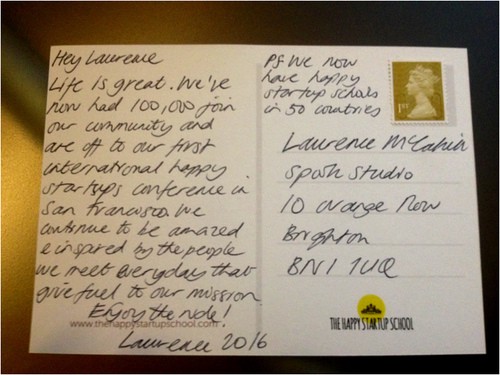 Hey Laurence
Life is great. We've
now had 100,000 join
our community and
are off to our first
international happy
startups conference in
San Francisco. We
continue to be amazed
& inspired by the people
we meet everyday that
give fuel to our mission
Enjoy the ride!
www.thehappystartupschool.com
Laurence 2016
PS We now
have happy
startup schools
in 50 countries
1ST
Laurence McCahill
Spook Studio
10 Orange Row
Brighton
BN1 1UQ
THE HAPPY STARTUP SCHOOL